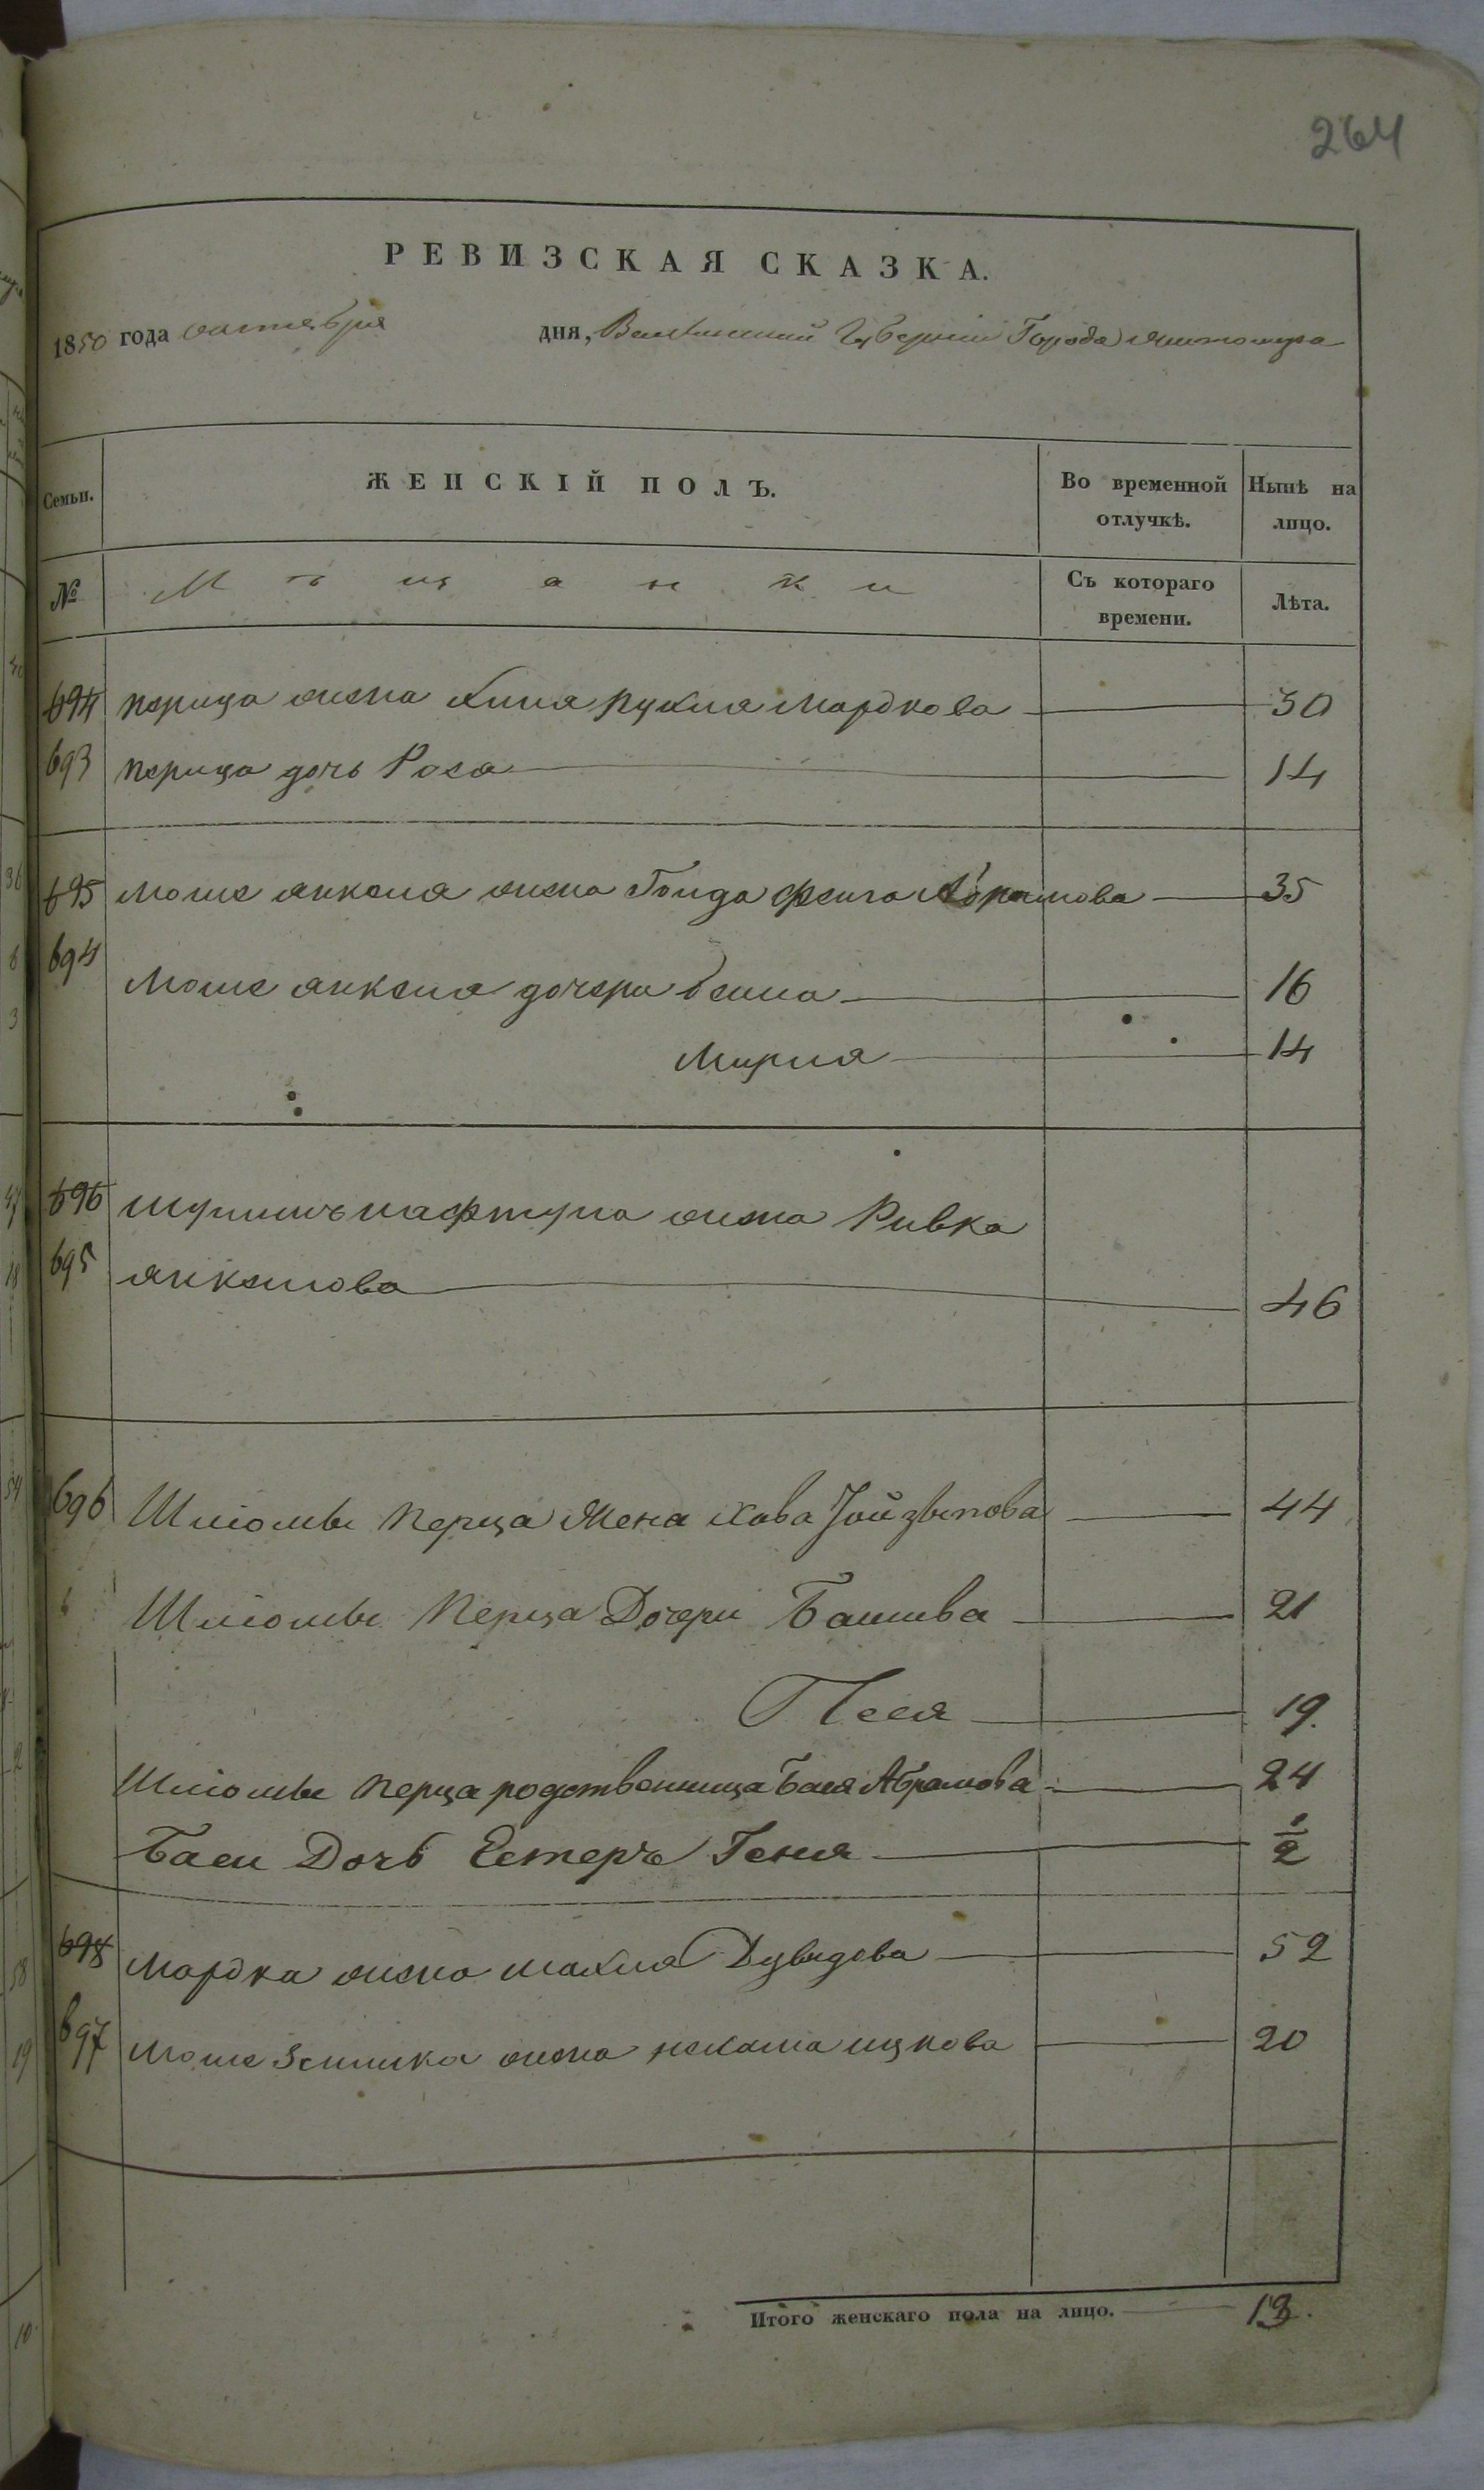 264
РЕВИЗСКАЯ СКАЗКА.
1850 года октября дня, Волынской Губернии Города Житомира
Семьи. ЖЕНСКІЙ ПОЛЪ. Во временной отлучкѣ. Нынѣ на лицо.
№ Мѣщанки Съ котораго времени. Лѣта.
694 перица жена Хина рухля Мардкова 30
693 перица дочь Роза 14
695 Моше янкеля жена Голда фейга Абрамова 35
694
Моше янкеля дочери Бейла 16
Мирля 14
696 нафтула жена Ривка
695 янкелова 46
696 Шліомы Перца Жена Хава 44
Шліомы Перца Дочери Башива 21
Песя 19.
Шліомы Перца родственница Бася Абрамова 24
Баси Дочь Естеръ Геня 1/2
698 Мардка жена Дувидова 52
697 Моше жена ицкова 20
Итого женскаго пола на лицо. 13.